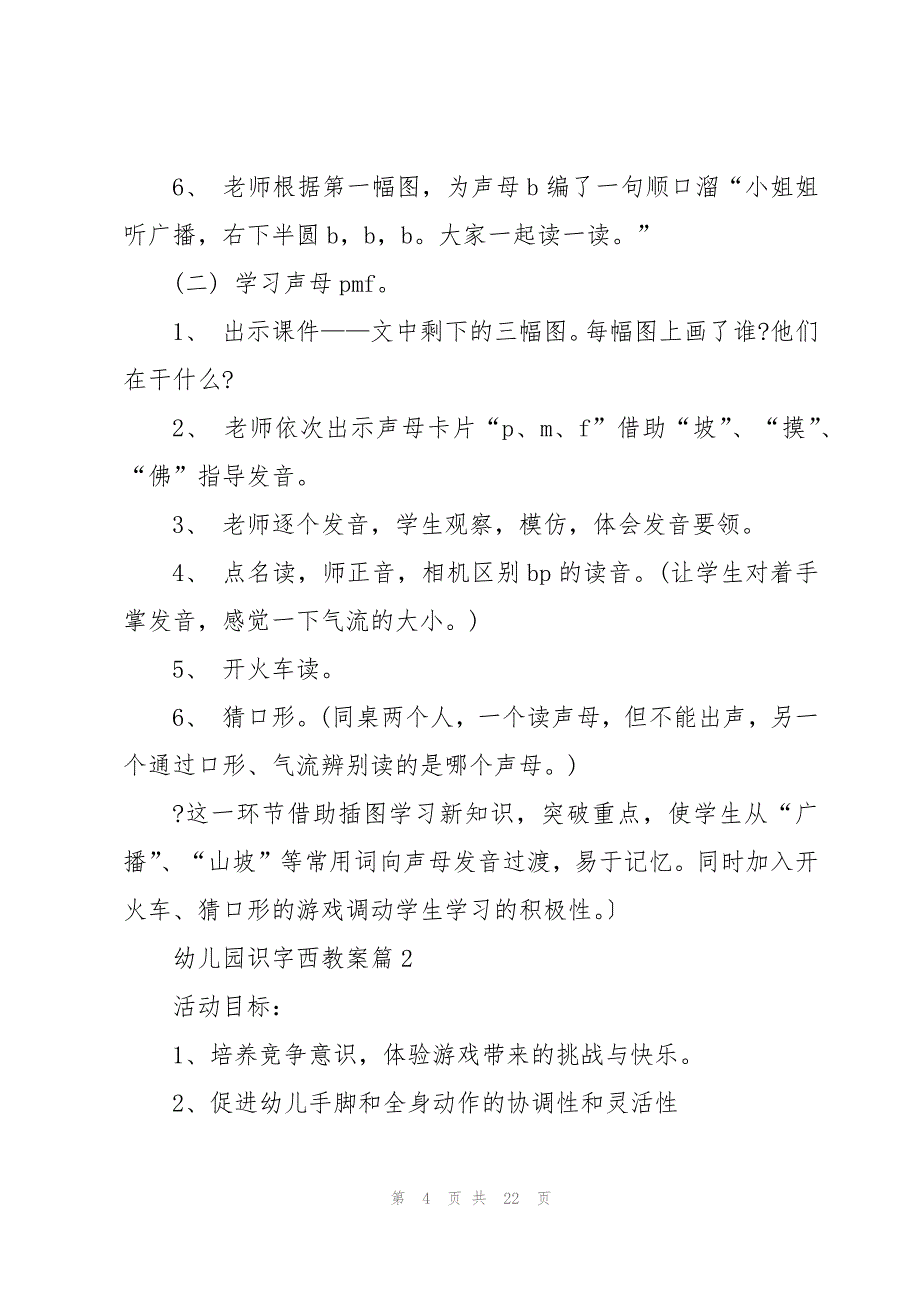 6、 老师根据第一幅图，为声母b编了一句顺口溜“小姐姐
听广播，右下半圆b，b，b。大家一起读一读。”
(二) 学习声母pmf。
1、 出示课件——文中剩下的三幅图。每幅图上画了谁?他们
在干什么?
2、 老师依次出示声母卡片“p、m、f”借助“坡”、“摸”、
“佛”指导发音。
3、 老师逐个发音，学生观察，模仿，体会发音要领。
4、 点名读，师正音，相机区别bp的读音。(让学生对着手
掌发音，感觉一下气流的大小。)
5、 开火车读。
6、 猜口形。(同桌两个人，一个读声母，但不能出声，另一
个通过口形、气流辨别读的是哪个声母。)
?这一环节借助插图学习新知识，突破重点，使学生从“广
播”、“山坡”等常用词向声母发音过渡，易于记忆。同时加入开
火车、猜口形的游戏调动学生学习的积极性。〕
幼儿园识字西教案篇2
活动目标：
1、培养竞争意识，体验游戏带来的挑战与快乐。
2、促进幼儿手脚和全身动作的协调性和灵活性
第 4 页 共 22 页